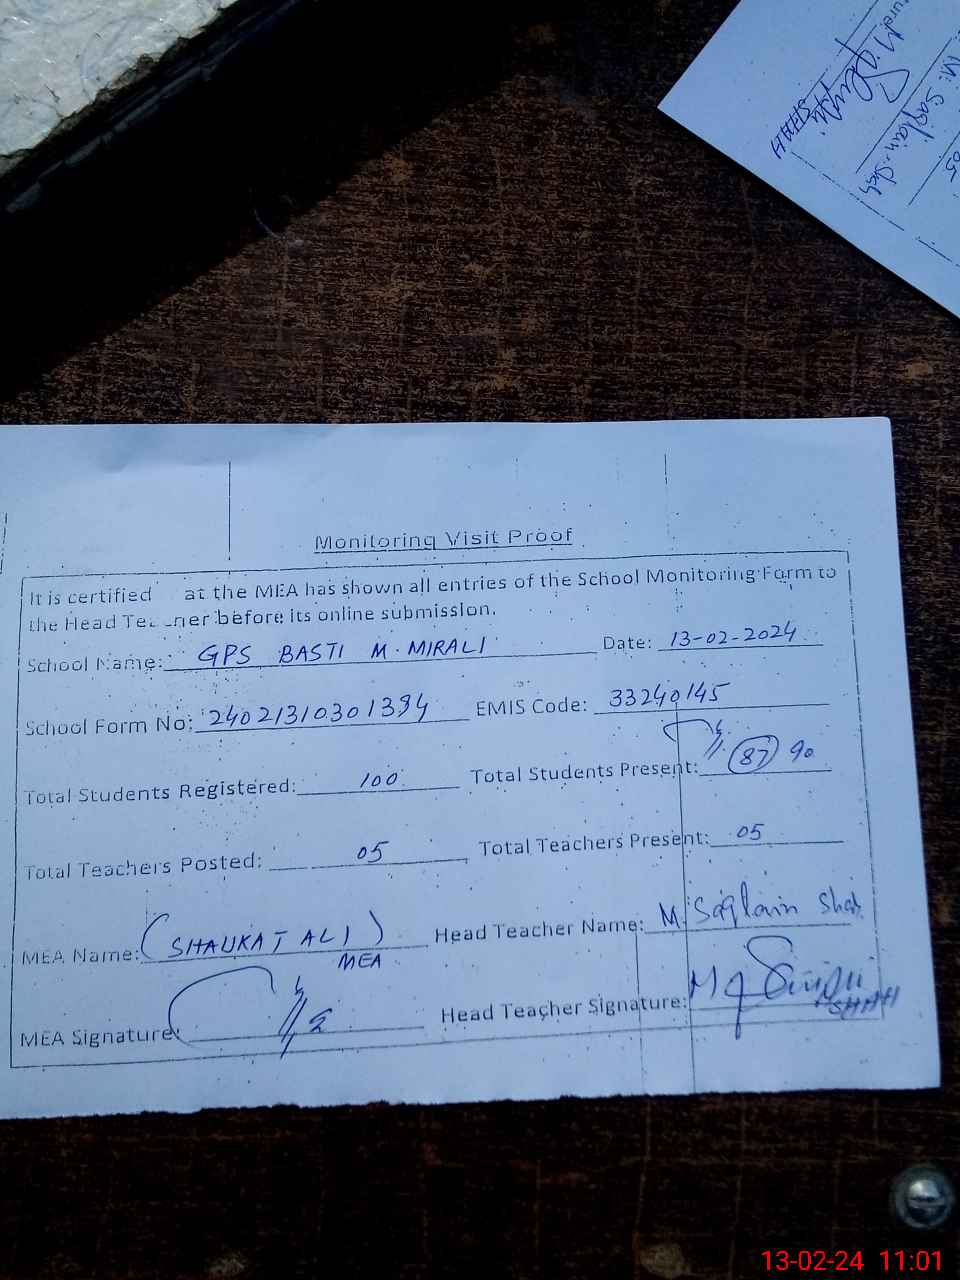 Monitoring Visit Proof
It is certified at the MEA has shown all entries of the School Monitoring Form to
the Head before its online submission.
School Name: GPS BASTI M. MIRALI Date: 13-02-2024
School Form No: 24021310301394 EMIS Code: 33240145
Total Students Registered: 100 Total Students Present: 87 90
Total Teachers Posted: 05 Total Teachers Present: 05
MEA Name: (SHAUKAT ALI) Head Teacher Name: M. Saqlain Shah
MEA
MEA Signature: Head Teacher Signature:
SHAH
M. Saqlain Shah
SHAH
05
13-02-24 11:01